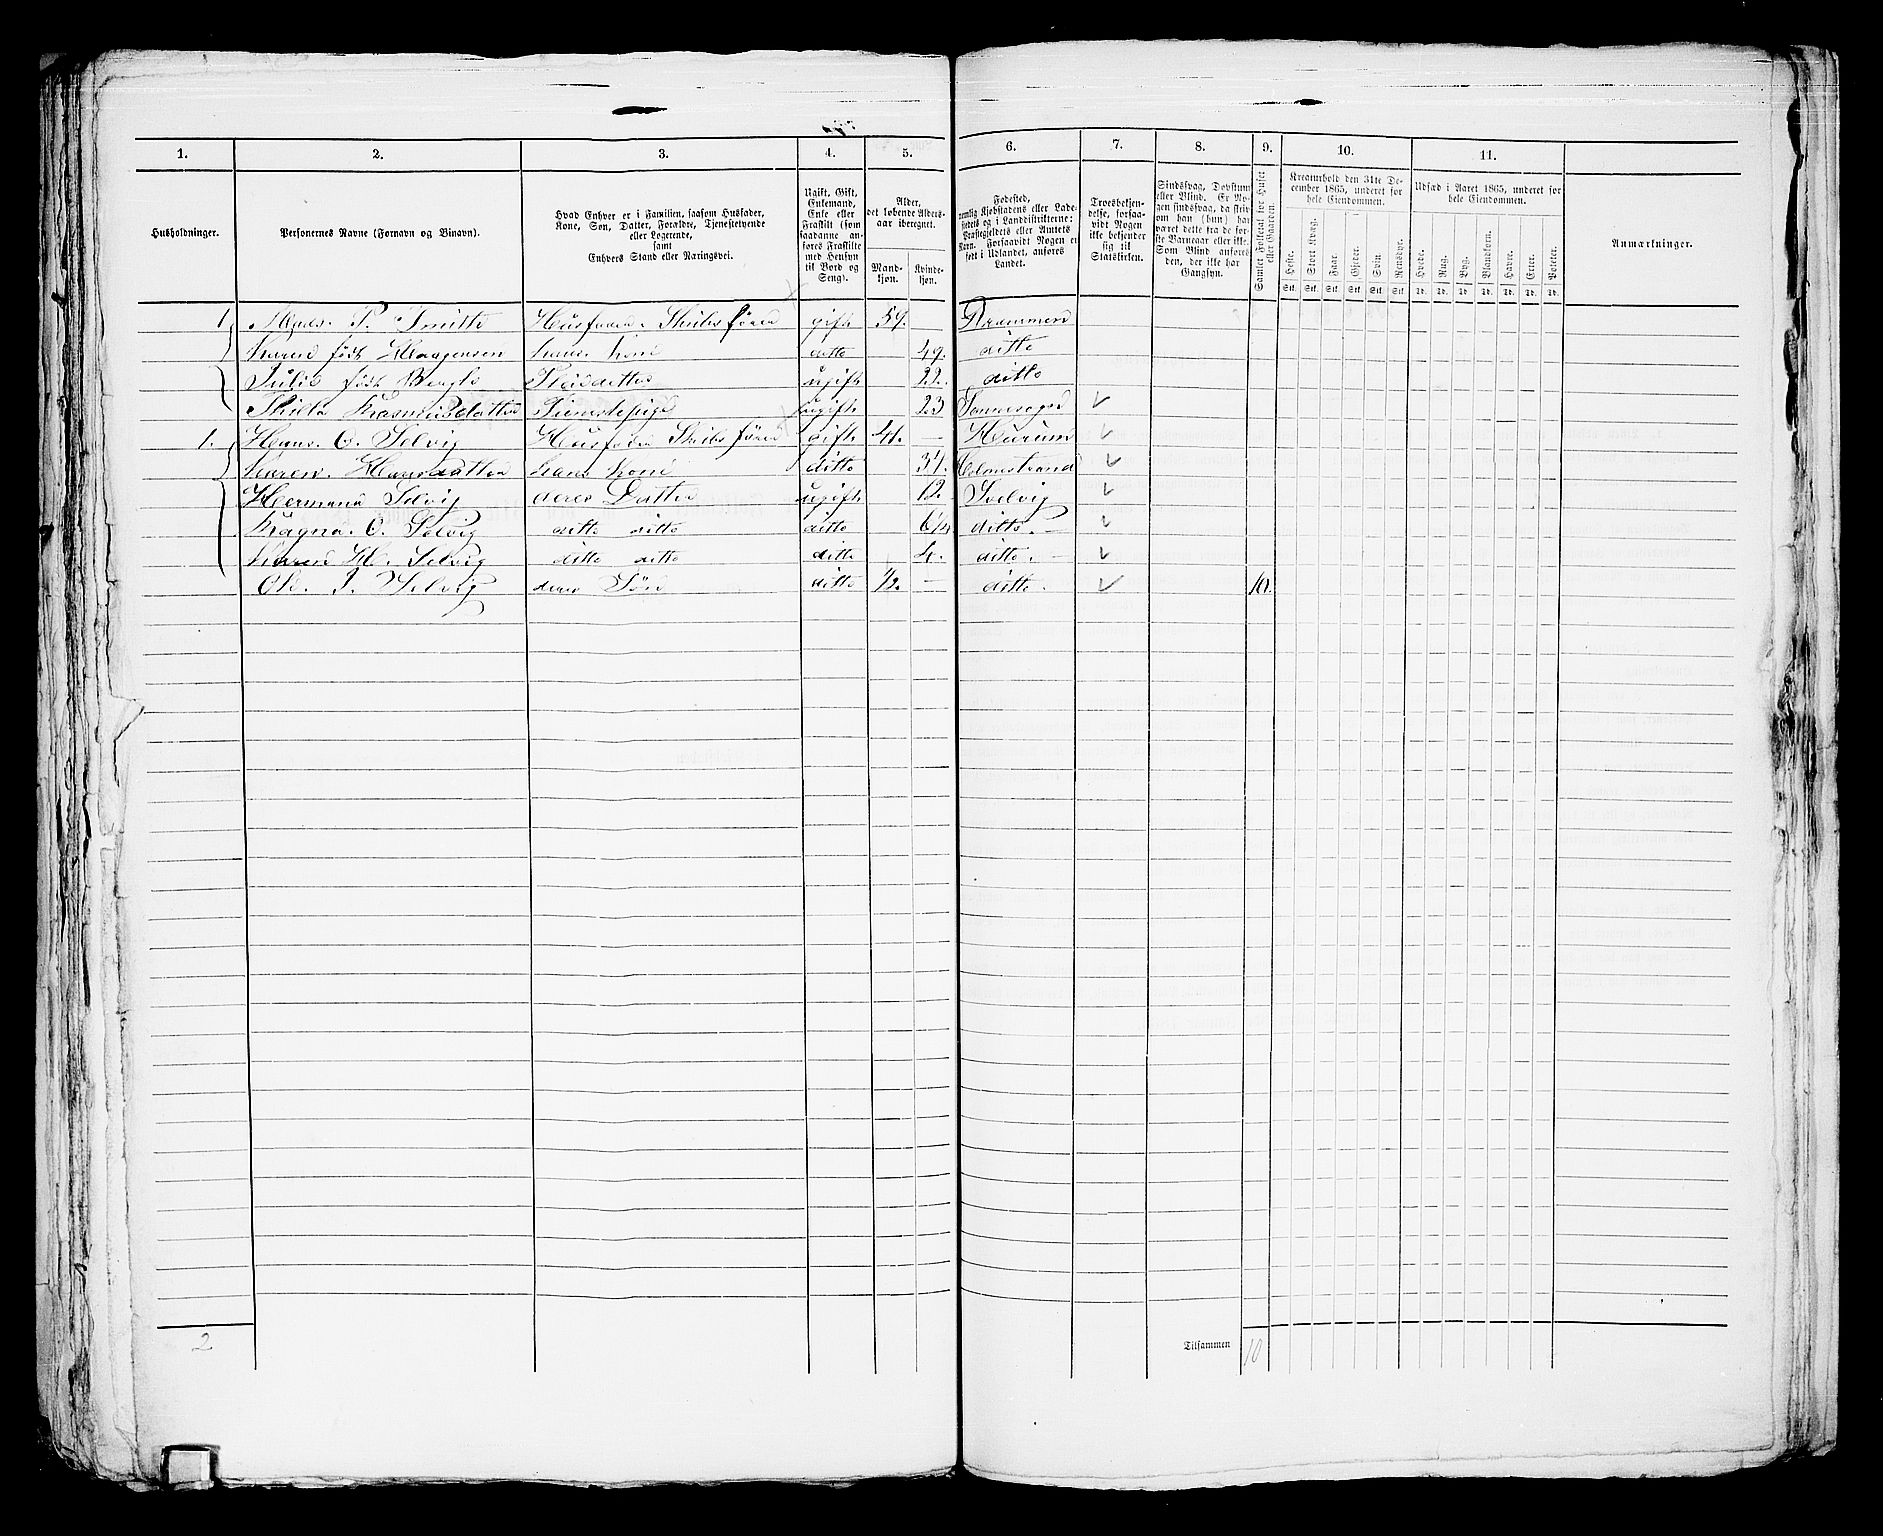 1. 2. 3. 4. 5. 6. 7. 8. 9. 10. 11.
Husholdninger.
Personernes Navne (Fornavn og Binavn).
Hvad Enhver er i Familien, saasom Husfader,
Kone, Søn, Datter, Forældre, Tjenestetyende
eller Logerende,
samt
Enhvers Stand eller Næringsvei.
Ugift, Gift,
Enkemand,
Enke eller
Fraskilt (som
saadanne an-
føres Fraskilte
med Hensyn
til Bord og
Seng).
Alder,
det løbende Alders-
aar iberegnet.
Mand-
kjøn.
Kvinde-
kjøn.
Fødested,
nemlig Kjøbstadens eller Lade-
stedets og i Landdistrikterne:
Præstegjeldets eller Amtets
Navn. Forsaavidt Nogen er
født i Udlandet, anføres
Landet.
Troesbekjen-
delse, forsaa-
vidt Nogen
ikke bekjender
sig til
Statskirken.
Sindssvag, Døvstum
eller Blind. Er No-
gen sindssvag, da skriv
om han (hun) har
været dette fra de før-
ste Barneaar eller ikke.
Som Blind anføres
den, der ikke har
Gangsyn.
Samlet Folketal for Huset
eller Gaarden.
Kreaturhold den 31te De-
cember 1865, underet for
hele Eiendommen.
Heste. Stort Kvæg. Faar. Gjeder. Svin. Rensdyr.
Stk. Stk. Stk. Stk. Stk. Stk.
Udsæd i Aaret 1865, underet for
hele Eiendommen.
Hvede. Rug. Byg. Blandkorn. Havre. Erter. Poteter.
Td. Td. Td. Td. Td. Td. Td.
Anmærkninger.
1 Mads. P. Smitt Husfader. Skibsfører gift 54. Drammen
Karen født Haagensen hans Kone ditto 49. ditto
Julie født ugift 22. ditto
Rasmusdatter Tjenestepige ugift 23
1. Hans. O. Selvig Husfader Skibsfører gift 41. — Hurum
Karen. Hansdatter hans Kone ditto 34. Holmestrand
Selvig deres Datter ugift 12. Selvig
Ragna. O. Selvig ditto ditto ditto ditto. —
Karen H. Selvig ditto ditto ditto 4. ditto. —
Ole. J. Selvig deres Søn ditto 1/2. — ditto. 10.
2 Tilsammen 10